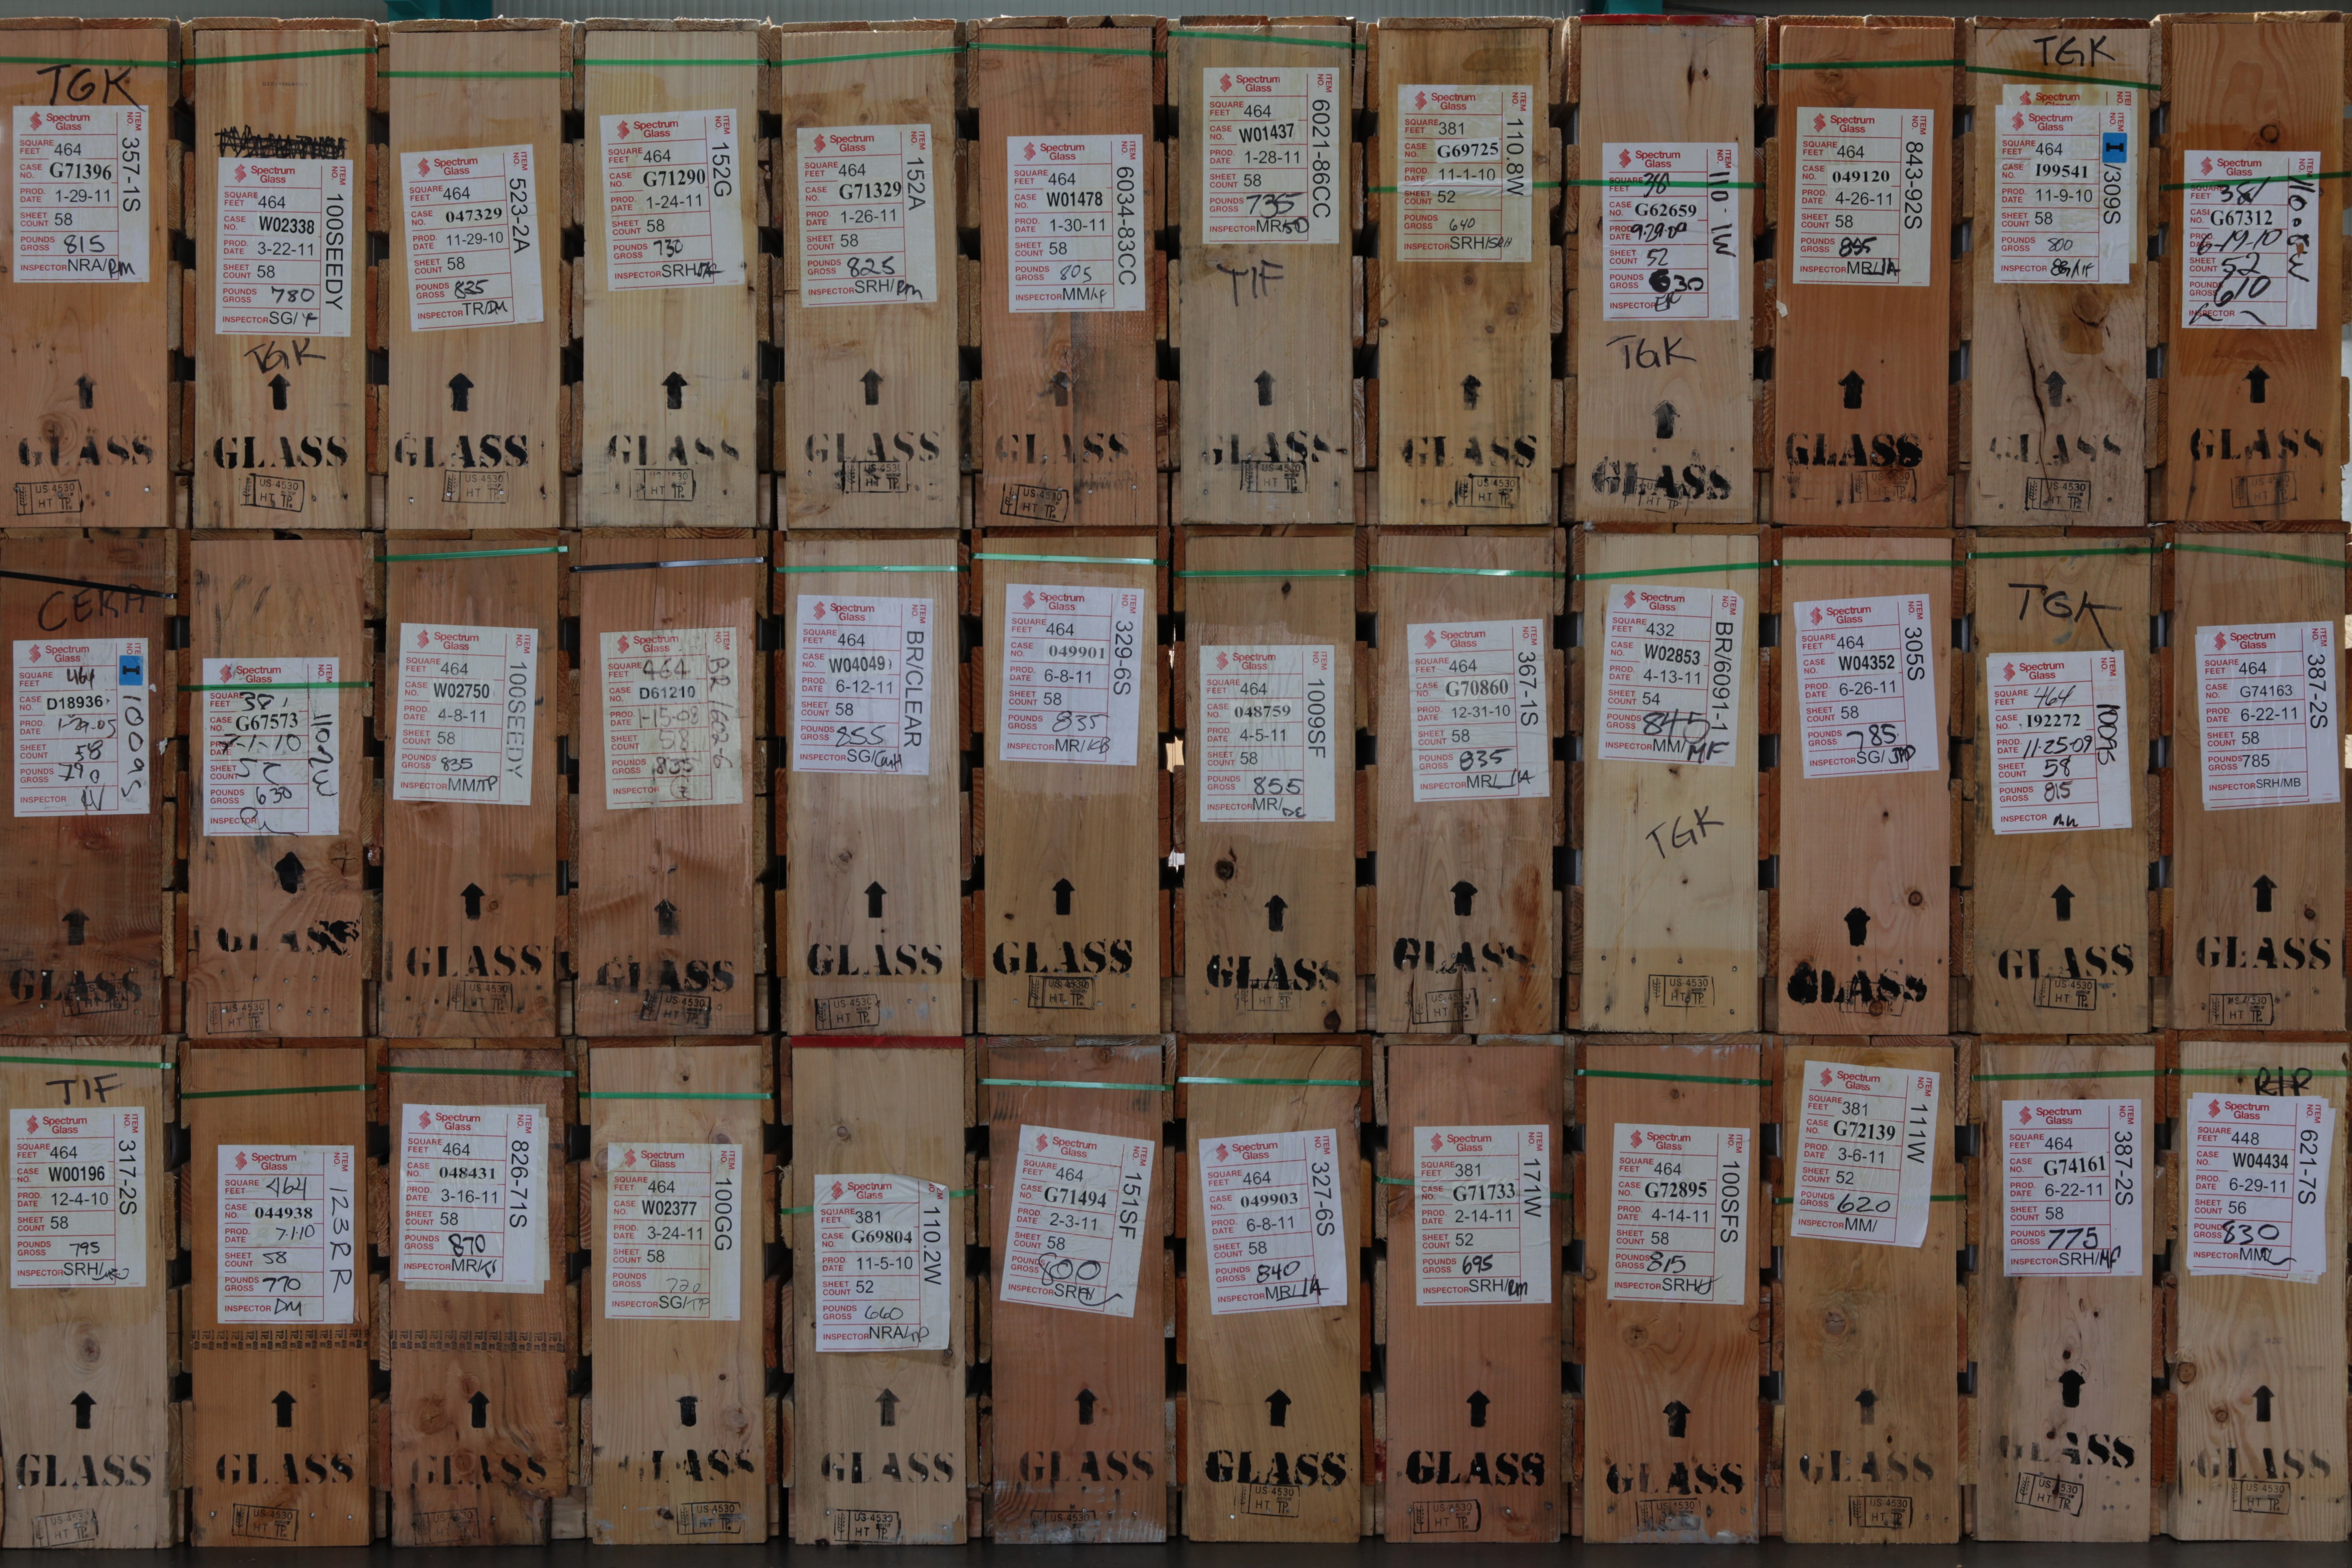 TGK
Spectrum
Glass
ITEM NO. 357-1S
SQUARE FEET 464
CASE NO. G71396
PROD. DATE 1-29-11
SHEET COUNT 58
POUNDS GROSS 815
INSPECTOR NRA/RM
GLASS
US-4530
HT TP
Spectrum
Glass
ITEM NO. 100SEEDY
SQUARE FEET 464
CASE NO. W02338
PROD. DATE 3-22-11
SHEET COUNT 58
POUNDS GROSS 780
INSPECTOR SG/
TGK
GLASS
US-4530
HT TP
Spectrum
Glass
ITEM NO. 523-2A
SQUARE FEET 464
CASE NO. 047329
PROD. DATE 11-29-10
SHEET COUNT 58
POUNDS GROSS 825
INSPECTOR TR/DM
GLASS
US-4530
HT TP
Spectrum
Glass
ITEM NO. 152G
SQUARE FEET 464
CASE NO. G71290
PROD. DATE 1-24-11
SHEET COUNT 58
POUNDS GROSS 730
INSPECTOR SRH/
GLASS
US-4530
HT TP
Spectrum
Glass
ITEM NO. 152A
SQUARE FEET 464
CASE NO. G71329
PROD. DATE 1-26-11
SHEET COUNT 58
POUNDS GROSS 825
INSPECTOR SRH/RM
GLASS
US-4530
HT TP
Spectrum
Glass
ITEM NO. 6034-83CC
SQUARE FEET 464
CASE NO. W01478
PROD. DATE 1-30-11
SHEET COUNT 58
POUNDS GROSS 805
INSPECTOR MM/
GLASS
US-4530
HT TP
Spectrum
Glass
ITEM NO. 6021-86CC
SQUARE FEET 464
CASE NO. W01437
PROD. DATE 1-28-11
SHEET COUNT 58
POUNDS GROSS 735
INSPECTOR MR/
TIF
GLASS
US-4530
HT TP
Spectrum
Glass
ITEM NO. 110.8W
SQUARE FEET 381
CASE NO. G69725
PROD. DATE 11-1-10
SHEET COUNT 52
POUNDS GROSS 640
INSPECTOR SRH/SRH
GLASS
US-4530
HT TP
ITEM NO. 110-1W
Spectrum
Glass
SQUARE FEET
CASE NO. G62659
PROD. DATE 9-29-09
SHEET COUNT 52
POUNDS GROSS 630
INSPECTOR
TGK
GLASS
Spectrum
Glass
ITEM NO. 843-92S
SQUARE FEET 464
CASE NO. 049120
PROD. DATE 4-26-11
SHEET COUNT 58
POUNDS GROSS 855
INSPECTOR MR/IA
GLASS
US-4530
HT TP
TGK
Spectrum
Glass
ITEM NO. I /309S
SQUARE FEET 464
CASE NO. I99541
PROD. DATE 11-9-10
SHEET COUNT 58
POUNDS GROSS 800
INSPECTOR
GLASS
US-4530
HT TP
Spectrum
Glass
ITEM NO. 110.8W
SQUARE FEET 381
CASE NO. G67312
PROD. DATE 6-19-10
SHEET COUNT 52
POUNDS GROSS 610
INSPECTOR
GLASS
US-4530
HT TP
CERA
Spectrum
Glass
ITEM NO. I 1009S
SQUARE FEET 464
CASE NO. D18936
PROD. DATE 1-29-05
SHEET COUNT 58
POUNDS GROSS 790
INSPECTOR
GLASS
Spectrum
Glass
ITEM NO. 110.2W
SQUARE FEET 381
CASE NO. G67573
PROD. DATE 7-1-10
SHEET COUNT 52
POUNDS GROSS 630
INSPECTOR
GLASS
US-4530
HT TP
Spectrum
Glass
ITEM NO. 100SEEDY
SQUARE FEET 464
CASE NO. W02750
PROD. DATE 4-8-11
SHEET COUNT 58
POUNDS GROSS 835
INSPECTOR MM/TP
GLASS
US-4530
HT TP
Spectrum
Glass
ITEM NO. BR/602-6
SQUARE FEET 464
CASE NO. D61210
PROD. DATE 1-15-08
SHEET COUNT 58
POUNDS GROSS 835
INSPECTOR
GLASS
US-4530
HT TP
Spectrum
Glass
ITEM NO. BR/CLEAR
SQUARE FEET 464
CASE NO. W04049
PROD. DATE 6-12-11
SHEET COUNT 58
POUNDS GROSS 855
INSPECTOR SG/
GLASS
US-4530
HT TP
Spectrum
Glass
ITEM NO. 329-6S
SQUARE FEET 464
CASE NO. 049901
PROD. DATE 6-8-11
SHEET COUNT 58
POUNDS GROSS 835
INSPECTOR MR/KB
GLASS
US-4530
HT TP
Spectrum
Glass
ITEM NO. 1009SF
SQUARE FEET 464
CASE NO. 048759
PROD. DATE 4-5-11
SHEET COUNT 58
POUNDS GROSS 855
INSPECTOR MR/DE
GLASS
US-4530
HT TP
Spectrum
Glass
ITEM NO. 367-1S
SQUARE FEET 464
CASE NO. G70860
PROD. DATE 12-31-10
SHEET COUNT 58
POUNDS GROSS 835
INSPECTOR MR/IA
GLASS
US-4530
HT TP
Spectrum
Glass
ITEM NO. BR/6091-1
SQUARE FEET 432
CASE NO. W02853
PROD. DATE 4-13-11
SHEET COUNT 54
POUNDS GROSS 845
INSPECTOR MM/MF
TGK
US-4530
HT TP
Spectrum
Glass
ITEM NO. 305S
SQUARE FEET 464
CASE NO. W04352
PROD. DATE 6-26-11
SHEET COUNT 58
POUNDS GROSS 785
INSPECTOR SG/
GLASS
TGK
Spectrum
Glass
ITEM NO. 1009S
SQUARE FEET 464
CASE NO. I92272
PROD. DATE 11-25-09
SHEET COUNT 58
POUNDS GROSS 815
INSPECTOR
GLASS
US-4530
HT TP
Spectrum
Glass
ITEM NO. 387-2S
SQUARE FEET 464
CASE NO. G74163
PROD. DATE 6-22-11
SHEET COUNT 58
POUNDS GROSS 785
INSPECTOR SRH/MB
GLASS
US-4530
HT TP
TIF
Spectrum
Glass
ITEM NO. 317-2S
SQUARE FEET 464
CASE NO. W00196
PROD. DATE 12-4-10
SHEET COUNT 58
POUNDS GROSS 795
INSPECTOR SRH/
GLASS
US-4530
HT TP
Spectrum
Glass
ITEM NO. 123RR
SQUARE FEET 464
CASE NO. 044938
PROD. DATE 7-1-10
SHEET COUNT 58
POUNDS GROSS 770
INSPECTOR DM
GLASS
US-4530
HT TP
Spectrum
Glass
ITEM NO. 826-71S
SQUARE FEET 464
CASE NO. 048431
PROD. DATE 3-16-11
SHEET COUNT 58
POUNDS GROSS 870
INSPECTOR MR/
GLASS
US-4530
Spectrum
Glass
ITEM NO. 100GG
SQUARE FEET 464
CASE NO. W02377
PROD. DATE 3-24-11
SHEET COUNT 58
POUNDS GROSS 720
INSPECTOR SG/TP
GLASS
US-4530
HT TP
Spectrum
Glass
ITEM NO. 110.2W
SQUARE FEET 381
CASE NO. G69804
PROD. DATE 11-5-10
SHEET COUNT 52
POUNDS GROSS 660
INSPECTOR NRA/TP
GLASS
US-4530
HT TP
Spectrum
Glass
ITEM NO. 151SF
SQUARE FEET 464
CASE NO. G71494
PROD. DATE 2-3-11
SHEET COUNT 58
POUNDS GROSS 800
INSPECTOR SRH/
GLASS
US-4530
Spectrum
Glass
ITEM NO. 327-6S
SQUARE FEET 464
CASE NO. 049903
PROD. DATE 6-8-11
SHEET COUNT 58
POUNDS GROSS 840
INSPECTOR MR/IA
GLASS
US-4530
HT TP
Spectrum
Glass
ITEM NO. 171W
SQUARE FEET 381
CASE NO. G71733
PROD. DATE 2-14-11
SHEET COUNT 52
POUNDS GROSS 695
INSPECTOR SRH/RM
GLASS
US-4530
HT TP
Spectrum
Glass
ITEM NO. 100SFS
SQUARE FEET 464
CASE NO. G72895
PROD. DATE 4-14-11
SHEET COUNT 58
POUNDS GROSS 815
INSPECTOR SRH/
GLASS
US-4530
HT TP
Spectrum
Glass
ITEM NO. 111W
SQUARE FEET 381
CASE NO. G72139
PROD. DATE 3-6-11
SHEET COUNT 52
POUNDS GROSS 620
INSPECTOR MM/
GLASS
US-4530
HT TP
Spectrum
Glass
ITEM NO. 387-2S
SQUARE FEET 464
CASE NO. G74161
PROD. DATE 6-22-11
SHEET COUNT 58
POUNDS GROSS 775
INSPECTOR SRH/MF
GLASS
US-4530
HT TP
Spectrum
Glass
ITEM NO. 621-7S
SQUARE FEET 448
CASE NO. W04434
PROD. DATE 6-29-11
SHEET COUNT 56
POUNDS GROSS 830
INSPECTOR MM/
GLASS
US-4530
HT TP